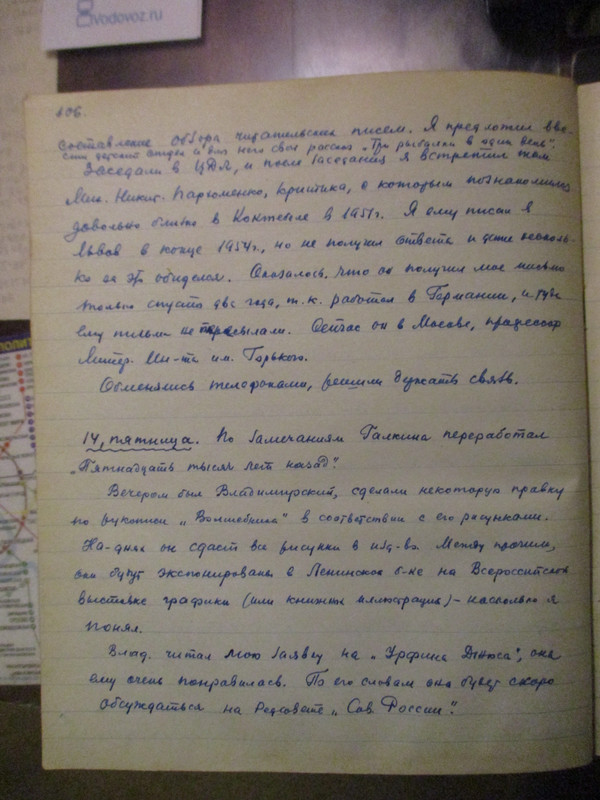 Vodovoz.ru
106.
составление обзора читательских писем. Я предложил вве-
сти детский отдел и дал для него свой рассказ „Три рыбалки в один день".
Заседали в ЦДЛ, и после заседания я встретил там
Мих. Никит. Пархоменко, критика, с которым познакомились
довольно близко в Коктебеле в 1951г. Я ему писал в
Львов в конце 1954г., но не получил ответа и даже несколь-
ко за это обиделся. Оказалось, что он получил мое письмо
только спустя два года, т.к. работал в Германии, и туда
ему письма не пересылали. Сейчас он в Москве, профессор
Литер. Ин-та им. Горького.
Обменялись телефонами, решили держать связь.
14, пятница. По замечаниям Галкина переработал
„Пятнадцать тысяч лет назад".
Вечером был Владимирский, сделали некоторую правку
по рукописи „Волшебника" в соответствии с его рисунками.
На-днях он сдаст все рисунки в изд-во. Между прочим,
они будут экспонированы в Ленинской б-ке на Всероссийской
выставке графики (или книжных иллюстраций) – насколько я
понял.
Влад. читал мою заявку на „Урфина Джюса", она
ему очень понравилась. По его словам она будет скоро
обсуждаться на Редсовете „Сов. России".
ПОЛИТ